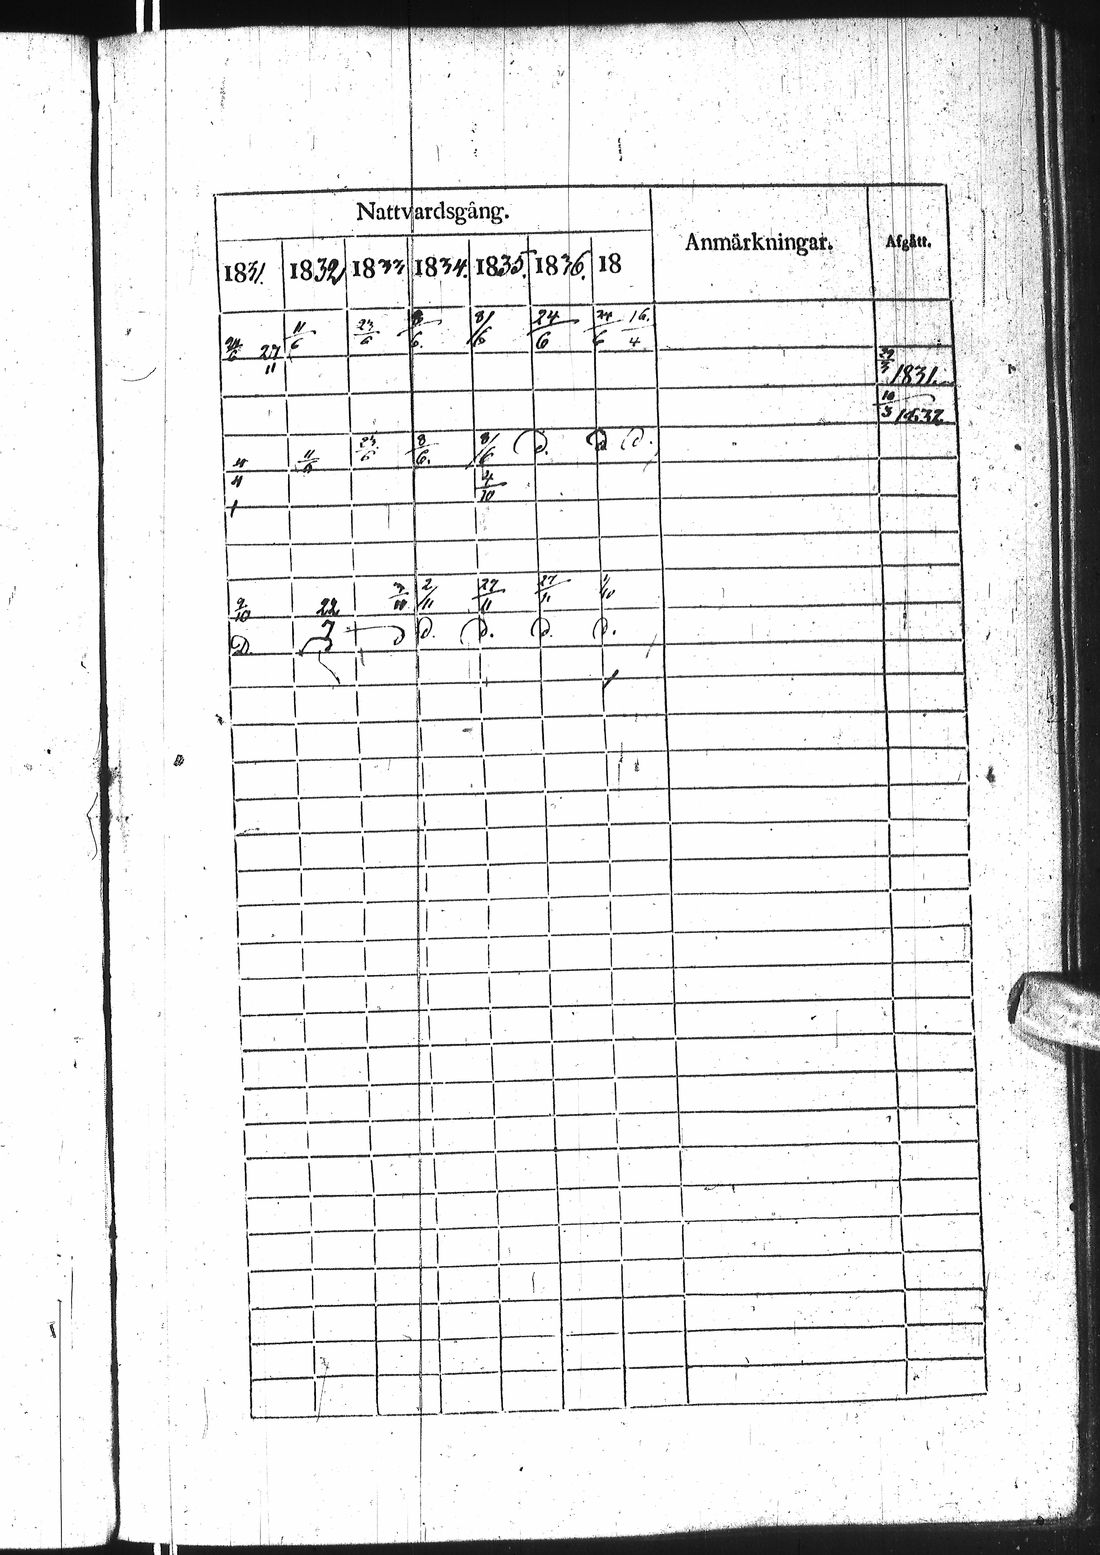 Nattvardsgång. Anmärkningar. Afgått.
1831. 1832 1833 1834. 1835. 1836. 18
24/6 27/11 11/6 23/6 8/6. 8/6 24/6 24/6 16/4
29/3 1831.
10/3 1832
11/6 23/6 8/6. 8/6 D. D D.
4/10
9/10 22/7 2/11 27/11 27/11 1/10
D. D D. D. D. D.